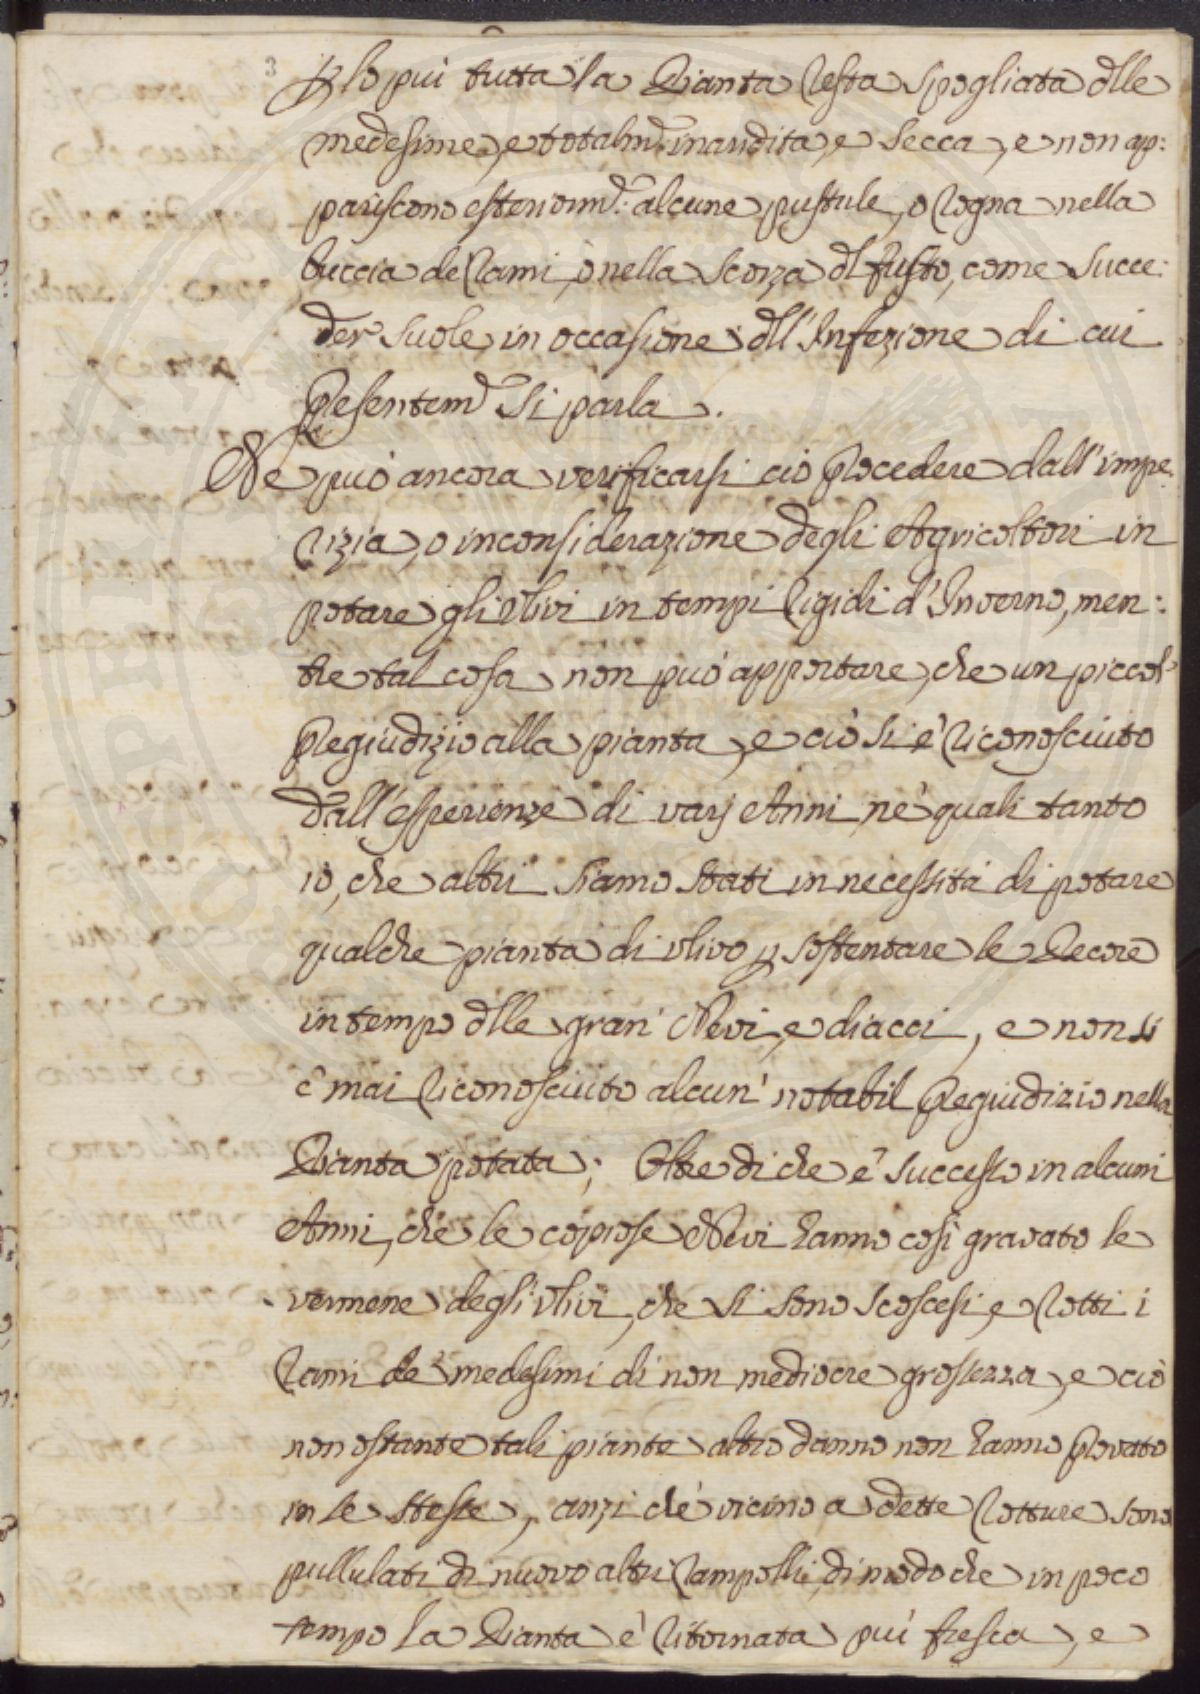 3
p lo più tutta la Pianta resta spogliata dlle
medesime, e totalmd: inaridita, e secca, e non ap:
pariscono esteriormd: alcune pustule, o rogna nella
buccia de rami, o nella scorza dl fusto, come succe:
der suole in occasione dll'Infezione di cui
presentemd si parla.
Ne può ancora verificarsi ciò procedere dall'impe
rizia, o inconsiderazione degli Agricoltori in
potare gli Vlivi in tempi rigidi d'Inverno, men:
tre tal cosa non può apportare, che un piccol
pregiudizio alla pianta, e ciò si è riconosciuto
dall'esperienze di varj Anni, nè quali tanto
io, che altri siamo stati in necessità di potare
qualche pianta di vlivo p sostentare le Pecore
in tempo dlle gran' Nevi, e diacci, e non si
è mai riconosciuto alcun' notabil pregiudizio nella
Pianta potata; Oltre di che è successo in alcuni
Anni, che le copiose Nevi hanno così gravato le
vermene degli vlivi, che si sono scoscesi, e rotti i
rami de' medesimi di non mediocre grossezza, e ciò
non ostante tali piante altro danno non hanno provato
in le stesse, anzi che vicino a dette rotture sono
pullulati di nuovo altri rampolli, di modo che in poco
tempo la Pianta è ritornata più fresca, e